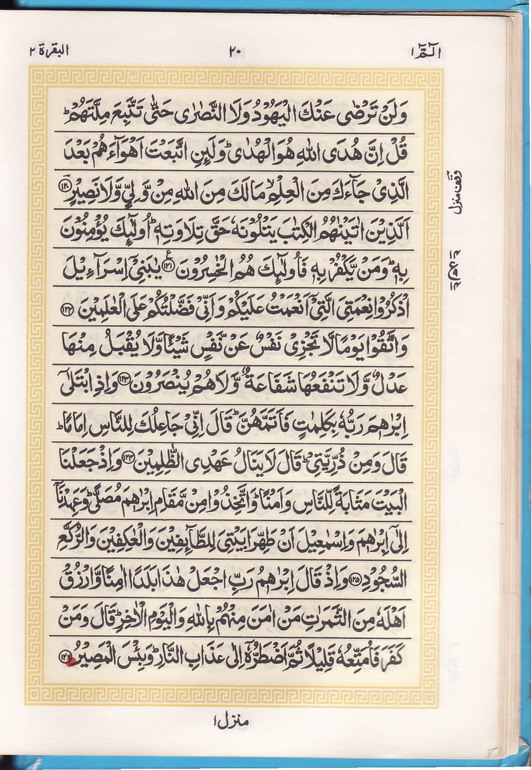 الٓمّٓ ١ ٢٠ البقرة ٢
وَلَنْ تَرْضٰی عَنْكَ الْیَهُوْدُ وَلَا النَّصٰرٰی حَتّٰی تَتَّبِعَ مِلَّتَهُمْ ؕ
قُلْ اِنَّ هُدَی اللّٰهِ هُوَ الْهُدٰی ؕ وَلَىِٕنِ اتَّبَعْتَ اَهْوَآءَهُمْ بَعْدَ
الَّذِیْ جَآءَكَ مِنَ الْعِلْمِ ۙ مَا لَكَ مِنَ اللّٰهِ مِنْ وَّلِیٍّ وَّلَا نَصِیْرٍ ۝۱۲۰
اَلَّذِیْنَ اٰتَیْنٰهُمُ الْكِتٰبَ یَتْلُوْنَهٗ حَقَّ تِلَاوَتِهٖ ؕ اُولٰٓىِٕكَ یُؤْمِنُوْنَ
بِهٖ ؕ وَمَنْ یَّكْفُرْ بِهٖ فَاُولٰٓىِٕكَ هُمُ الْخٰسِرُوْنَ ۝۱۲۱ یٰبَنِیْۤ اِسْرَآءِیْلَ
اذْكُرُوْا نِعْمَتِیَ الَّتِیْۤ اَنْعَمْتُ عَلَیْكُمْ وَاَنِّیْ فَضَّلْتُكُمْ عَلَی الْعٰلَمِیْنَ ۝۱۲۲
وَاتَّقُوْا یَوْمًا لَّا تَجْزِیْ نَفْسٌ عَنْ نَّفْسٍ شَیْـًٔا وَّلَا یُقْبَلُ مِنْهَا
عَدْلٌ وَّلَا تَنْفَعُهَا شَفَاعَةٌ وَّلَا هُمْ یُنْصَرُوْنَ ۝۱۲۳ وَاِذِ ابْتَلٰۤی
اِبْرٰهٖمَ رَبُّهٗ بِكَلِمٰتٍ فَاَتَمَّهُنَّ ؕ قَالَ اِنِّیْ جَاعِلُكَ لِلنَّاسِ اِمَامًا ؕ
قَالَ وَمِنْ ذُرِّیَّتِیْ ؕ قَالَ لَا یَنَالُ عَهْدِی الظّٰلِمِیْنَ ۝۱۲۴ وَاِذْ جَعَلْنَا
الْبَیْتَ مَثَابَةً لِّلنَّاسِ وَاَمْنًا ؕ وَاتَّخِذُوْا مِنْ مَّقَامِ اِبْرٰهٖمَ مُصَلًّی ؕ وَعَهِدْنَاۤ
اِلٰۤی اِبْرٰهٖمَ وَاِسْمٰعِیْلَ اَنْ طَهِّرَا بَیْتِیَ لِلطَّآىِٕفِیْنَ وَالْعٰكِفِیْنَ وَالرُّكَّعِ
السُّجُوْدِ ۝۱۲۵ وَاِذْ قَالَ اِبْرٰهٖمُ رَبِّ اجْعَلْ هٰذَا بَلَدًا اٰمِنًا وَّارْزُقْ
اَهْلَهٗ مِنَ الثَّمَرٰتِ مَنْ اٰمَنَ مِنْهُمْ بِاللّٰهِ وَالْیَوْمِ الْاٰخِرِ ؕ قَالَ وَمَنْ
كَفَرَ فَاُمَتِّعُهٗ قَلِیْلًا ثُمَّ اَضْطَرُّهٗۤ اِلٰی عَذَابِ النَّارِ ؕ وَبِئْسَ الْمَصِیْرُ ۝۱۲۶
وقف منزل
منزل ١